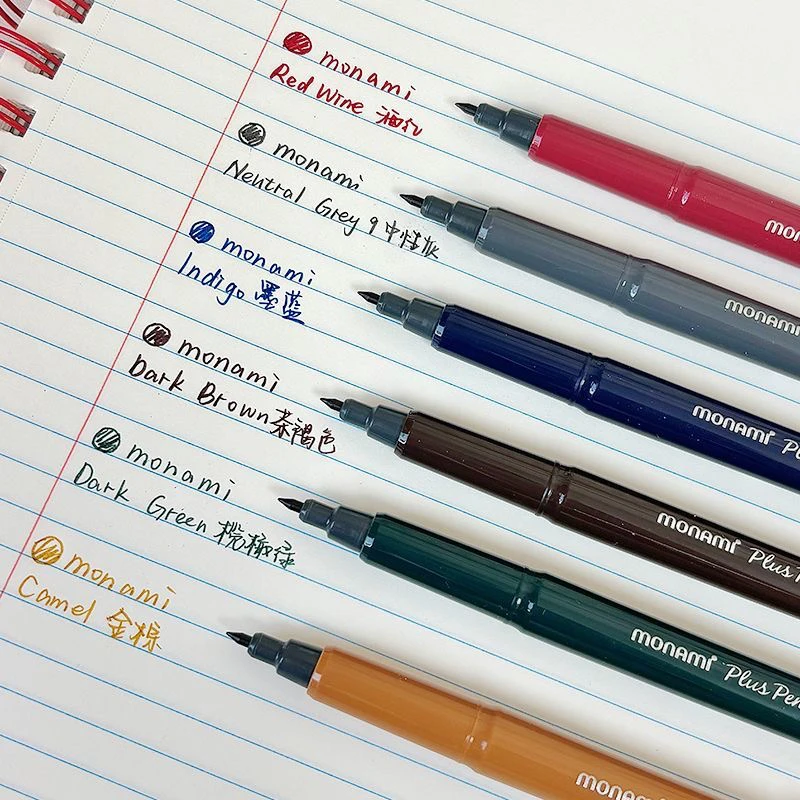 monami
Red Wine 酒红
monami
Neutral Grey 9 中性灰
monami
Indigo 墨蓝
monami
Dark Brown 茶褐色
monami
Dark Green 橄榄绿
monami
Camel 金棕
mon
monami
monami Pl
monami Plus P
monami Plus Pen
monami